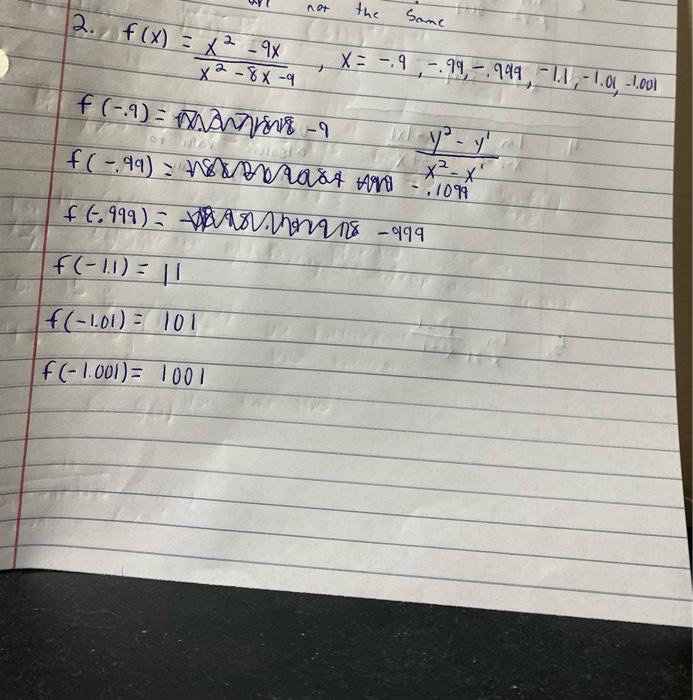 not the Same
2. f(x) = x² - 9x / x² - 8x - 9 , x = -.9, -.99, -.999, -1.1, -1.01, -1.001
f(-.9) = -9
y² - y' / x² - x'
f(-.99) = -.1099
f(-.999) = -999
f(-1.1) = 11
f(-1.01) = 101
f(-1.001) = 1001